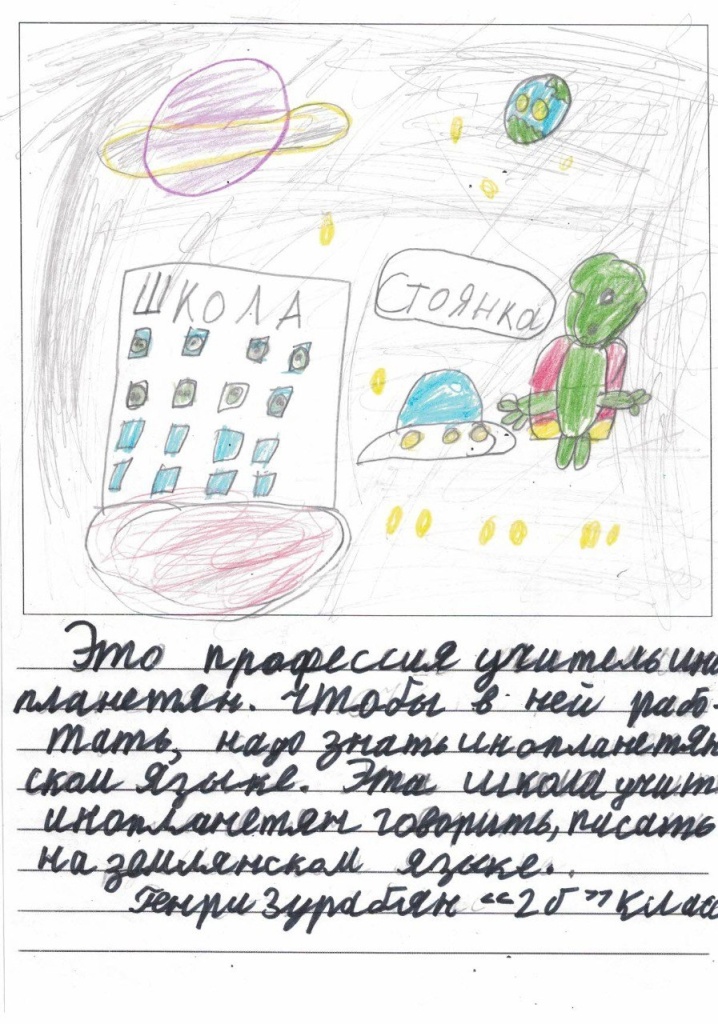 ШКОЛА
СТОЯНКА
Это профессия учитель ино
планетян. Чтобы в ней рабо-
тать, надо знать инопланетян
ском языке. Эта школа учит
инопланетян говорить, писать
на землянском языке.
Генри Зурабян "2б" клас